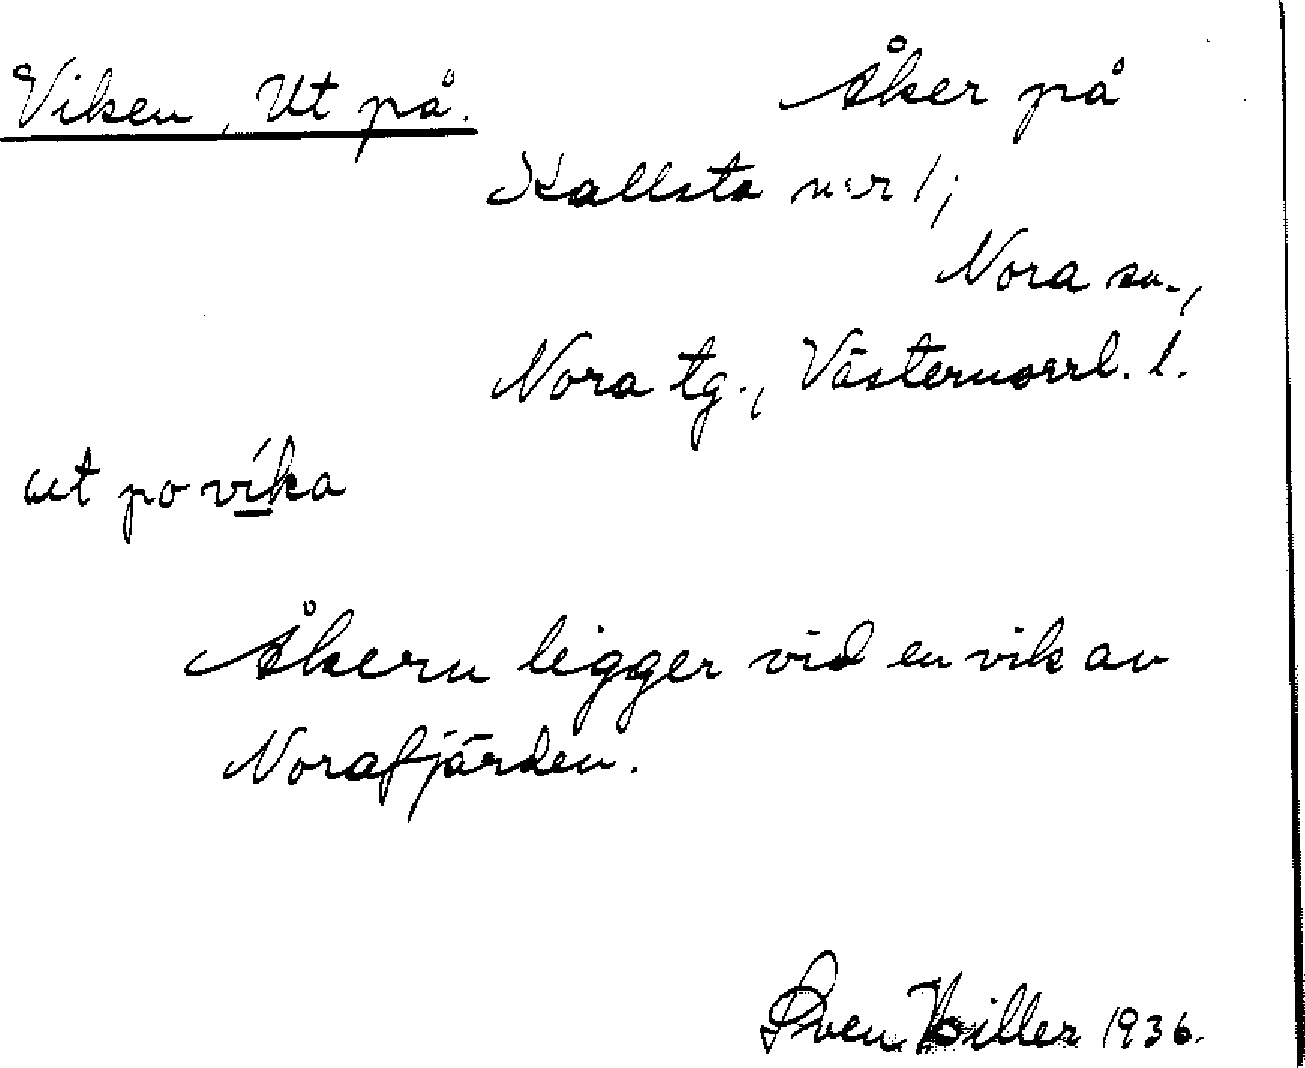 Viken, Ut på. Åker på
Kallsta n:r 1;
Nora sn.,
Nora tg., Västernorrl. l.
ut po víka
Åkern ligger vid en vik av
Norafjärden.
Sven Hiller 1936.